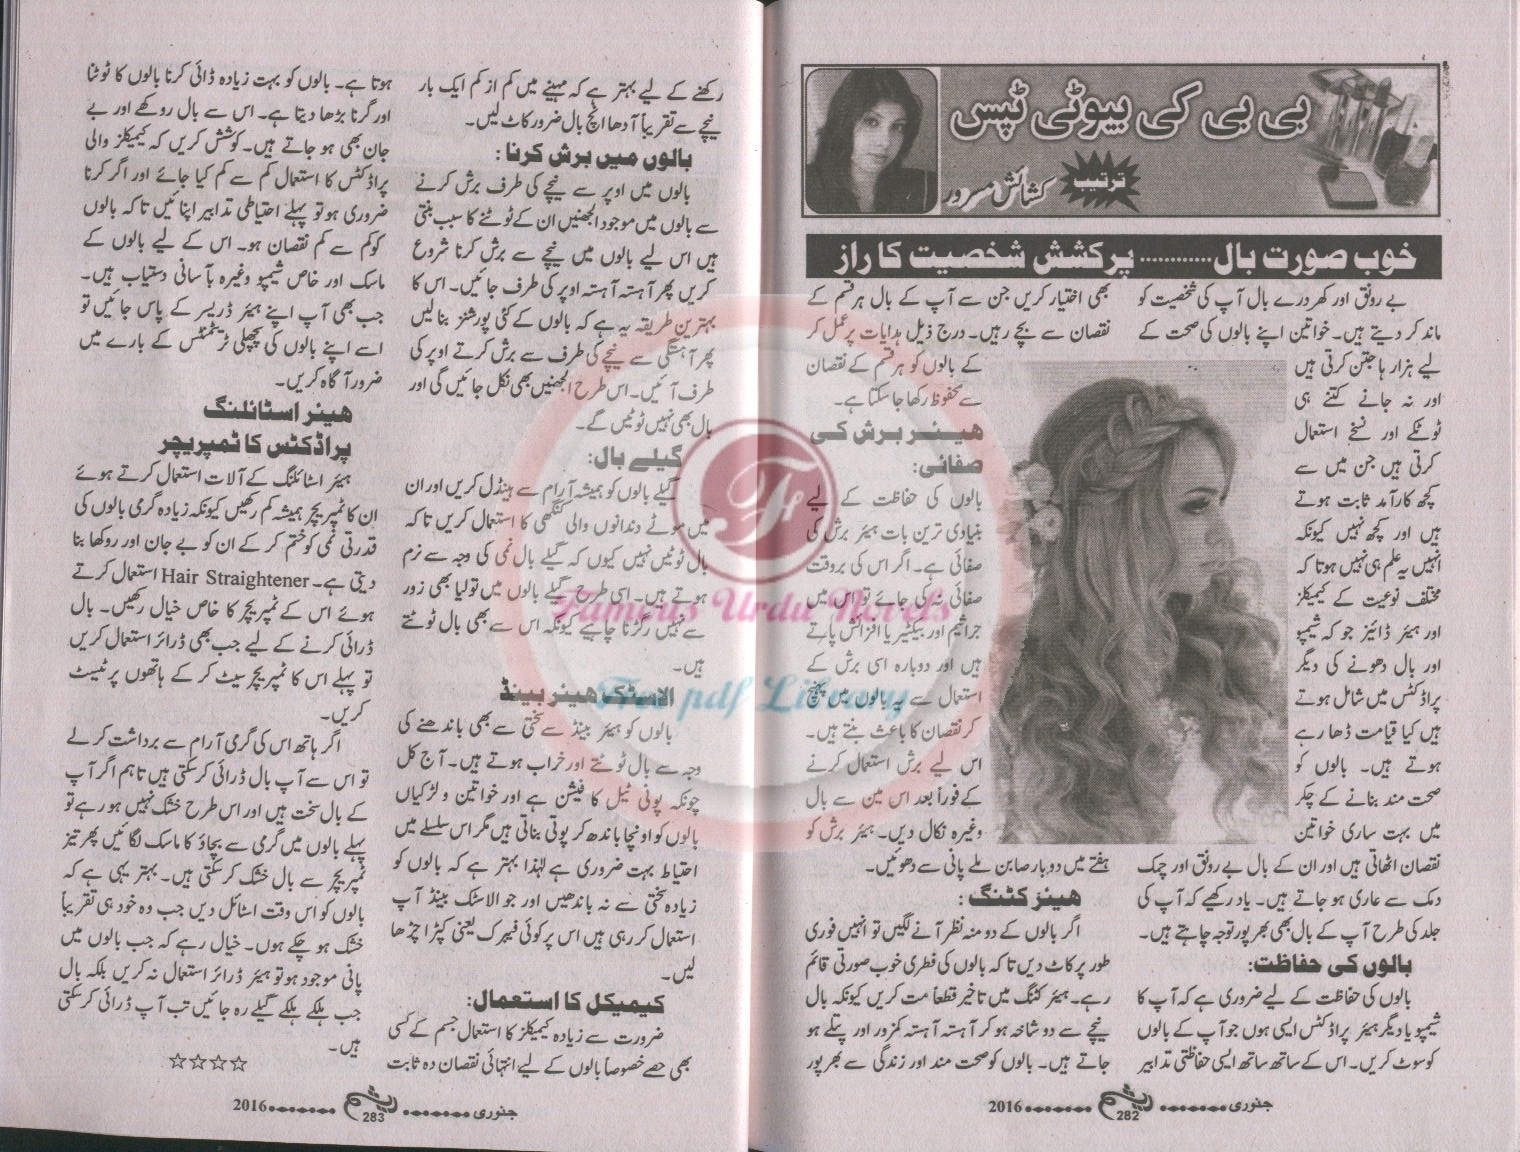 بی بی کی بیوٹی ٹپس
ترتیب
کشائش مسرور
خوب صورت بال............ پرکشش شخصیت کا راز
بے رونق اور کھردرے بال آپ کی شخصیت کو
ماند کر دیتے ہیں۔ خواتین اپنے بالوں کی صحت کے
لیے ہزار ہا جتن کرتی ہیں
اور نہ جانے کتنے ہی
ٹوٹکے اور نسخے استعمال
کرتی ہیں جن میں سے
کچھ کارآمد ثابت ہوتے
ہیں اور کچھ نہیں کیونکہ
انہیں یہ علم ہی نہیں ہوتا کہ
مختلف نوعیت کے کیمیکلز
اور ہیئر ڈائیز جو کہ شیمپو
اور بال دھونے کی دیگر
پراڈکٹس میں شامل ہوتے
ہیں کیا قیامت ڈھا رہے
ہوتے ہیں۔ بالوں کو
صحت مند بنانے کے چکر
میں بہت ساری خواتین
نقصان اٹھاتی ہیں اور ان کے بال بے رونق اور چمک
دمک سے عاری ہو جاتے ہیں۔ یاد رکھیے کہ آپ کی
جلد کی طرح آپ کے بال بھی بھرپور توجہ چاہتے ہیں۔
بالوں کی حفاظت:
بالوں کی حفاظت کے لیے ضروری ہے کہ آپ کا
شیمپو یا دیگر ہیئر پراڈکٹس ایسی ہوں جو آپ کے بالوں
کو سوٹ کریں۔ اس کے ساتھ ساتھ ایسی حفاظتی تدابیر
بھی اختیار کریں جن سے آپ کے بال ہر قسم کے
نقصان سے بچے رہیں۔ درج ذیل ہدایات پر عمل کر
کے بالوں کو ہر قسم کے نقصان
سے محفوظ رکھا جا سکتا ہے۔
ہیئر برش کی
صفائی:
بالوں کی حفاظت کے لیے
بنیادی ترین بات ہیئر برش کی
صفائی ہے۔ اگر اس کی بروقت
صفائی نہ کی جائے تو اس میں
جراثیم اور بیکٹیریا افزائش پاتے
ہیں اور دوبارہ اسی برش کے
استعمال سے یہ بالوں میں پہنچ
کر نقصان کا باعث بنتے ہیں۔
اس لیے برش استعمال کرنے
کے فوراً بعد اس میں سے بال
وغیرہ نکال دیں۔ ہیئر برش کو
ہفتے میں دو بار صابن ملے پانی سے دھوئیں۔
ہیئر کٹنگ :
اگر بالوں کے دو منہ نظر آنے لگیں تو انہیں فوری
طور پر کاٹ دیں تاکہ بالوں کی فطری خوب صورتی قائم
رہے۔ ہیئر کٹنگ میں تاخیر قطعاً مت کریں کیونکہ بال
نیچے سے دو شاخہ ہو کر آہستہ آہستہ کمزور اور پتلے ہو
جاتے ہیں۔ بالوں کو صحت مند اور زندگی سے بھرپور
جنوری ....... 282 ....... 2016
رکھنے کے لیے بہتر ہے کہ مہینے میں کم از کم ایک بار
نیچے سے تقریباً آدھا انچ بال ضرور کاٹ لیں۔
بالوں میں برش کرنا :
بالوں میں اوپر سے نیچے کی طرف برش کرنے
سے بالوں میں موجود الجھنیں ان کے ٹوٹنے کا سبب بنتی
ہیں اس لیے بالوں میں نیچے سے برش کرنا شروع
کریں پھر آہستہ آہستہ اوپر کی طرف جائیں۔ اس کا
بہترین طریقہ یہ ہے کہ بالوں کے کئی پورشنز بنا لیں
پھر آہستگی سے نیچے کی طرف سے برش کرتے اوپر کی
طرف آئیں۔ اس طرح الجھنیں بھی نکل جائیں گی اور
بال بھی نہیں ٹوٹیں گے۔
گیلے بال:
گیلے بالوں کو ہمیشہ آرام سے ہینڈل کریں اور ان
میں موٹے دندانوں والی کنگھی کا استعمال کریں تاکہ
بال ٹوٹیں نہیں کیوں کہ گیلے بال نمی کی وجہ سے نرم
ہوتے ہیں۔ اسی طرح گیلے بالوں میں تولیا بھی زور
سے نہیں رگڑنا چاہیے کیونکہ اس سے بھی بال ٹوٹتے
ہیں۔
الاسٹک ہیئر بینڈ
بالوں کو ہیئر بینڈ سے سختی سے بھی باندھنے کی
وجہ سے بال ٹوٹتے اور خراب ہوتے ہیں۔ آج کل
چونکہ پونی ٹیل کا فیشن ہے اور خواتین و لڑکیاں
بالوں کو اونچا باندھ کر پونی بناتی ہیں مگر اس سلسلے میں
احتیاط بہت ضروری ہے لہٰذا بہتر ہے کہ بالوں کو
زیادہ سختی سے نہ باندھیں اور جو الاسٹک بینڈ آپ
استعمال کر رہی ہیں اس پر کوئی فیبرک یعنی کپڑا چڑھا
لیں۔
کیمیکل کا استعمال:
ضرورت سے زیادہ کیمیکلز کا استعمال جسم کے کسی
بھی حصے خصوصاً بالوں کے لیے انتہائی نقصان دہ ثابت
ہوتا ہے۔ بالوں کو بہت زیادہ ڈائی کرنا بالوں کا ٹوٹنا
اور گرنا بڑھا دیتا ہے۔ اس سے بال روکھے اور بے
جان بھی ہو جاتے ہیں۔ کوشش کریں کہ کیمیکلز والی
پراڈکٹس کا استعمال کم سے کم کیا جائے اور اگر کرنا
ضروری ہو تو پہلے احتیاطی تدابیر اپنائیں تاکہ بالوں
کو کم سے کم نقصان ہو۔ اس کے لیے بالوں کے
ماسک اور خاص شیمپو وغیرہ بآسانی دستیاب ہیں۔
جب بھی آپ اپنے ہیئر ڈریسر کے پاس جائیں تو
اسے اپنے بالوں کی پچھلی ٹریٹمنٹس کے بارے میں
ضرور آگاہ کریں۔
ہیئر اسٹائلنگ
پراڈکٹس کا ٹمپریچر
ہیئر اسٹائلنگ کے آلات استعمال کرتے ہوئے
ان کا ٹمپریچر ہمیشہ کم رکھیں کیونکہ زیادہ گرمی بالوں کی
قدرتی نمی کو ختم کر کے ان کو بے جان اور روکھا بنا
دیتی ہے۔ Hair Straightener استعمال کرتے
ہوئے اس کے ٹمپریچر کا خاص خیال رکھیں۔ بال
ڈرائی کرنے کے لیے جب بھی ڈرائر استعمال کریں
تو پہلے اس کا ٹمپریچر سیٹ کر کے ہاتھوں پر ٹیسٹ
کریں۔
اگر ہاتھ اس کی گرمی آرام سے برداشت کر لے
تو اس سے آپ بال ڈرائی کر سکتی ہیں تاہم اگر آپ
کے بال سخت ہیں اور اس طرح خشک نہیں ہو رہے تو
پہلے بالوں میں گرمی سے بچاؤ کا ماسک لگائیں پھر تیز
ٹمپریچر سے بال خشک کر سکتی ہیں۔ بہتر یہی ہے کہ
بالوں کو اس وقت اسٹائل دیں جب وہ خود ہی تقریباً
خشک ہو چکے ہوں۔ خیال رہے کہ جب بالوں میں
پانی موجود ہو تو ہیئر ڈرائر استعمال نہ کریں بلکہ بال
جب ہلکے ہلکے گیلے رہ جائیں تب آپ ڈرائی کر سکتی
ہیں۔
☆☆☆☆
جنوری ....... 283 ....... 2016
Famous Urdu Novels
Free pdf Library